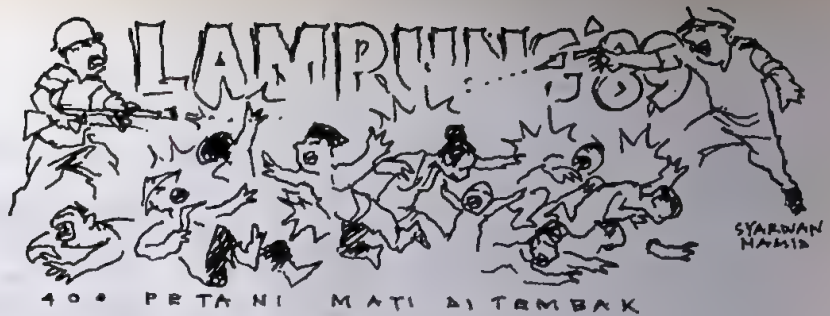 LAMPUNG
SYARWAN
HAMID
400 PETANI MATI DITEMBAK